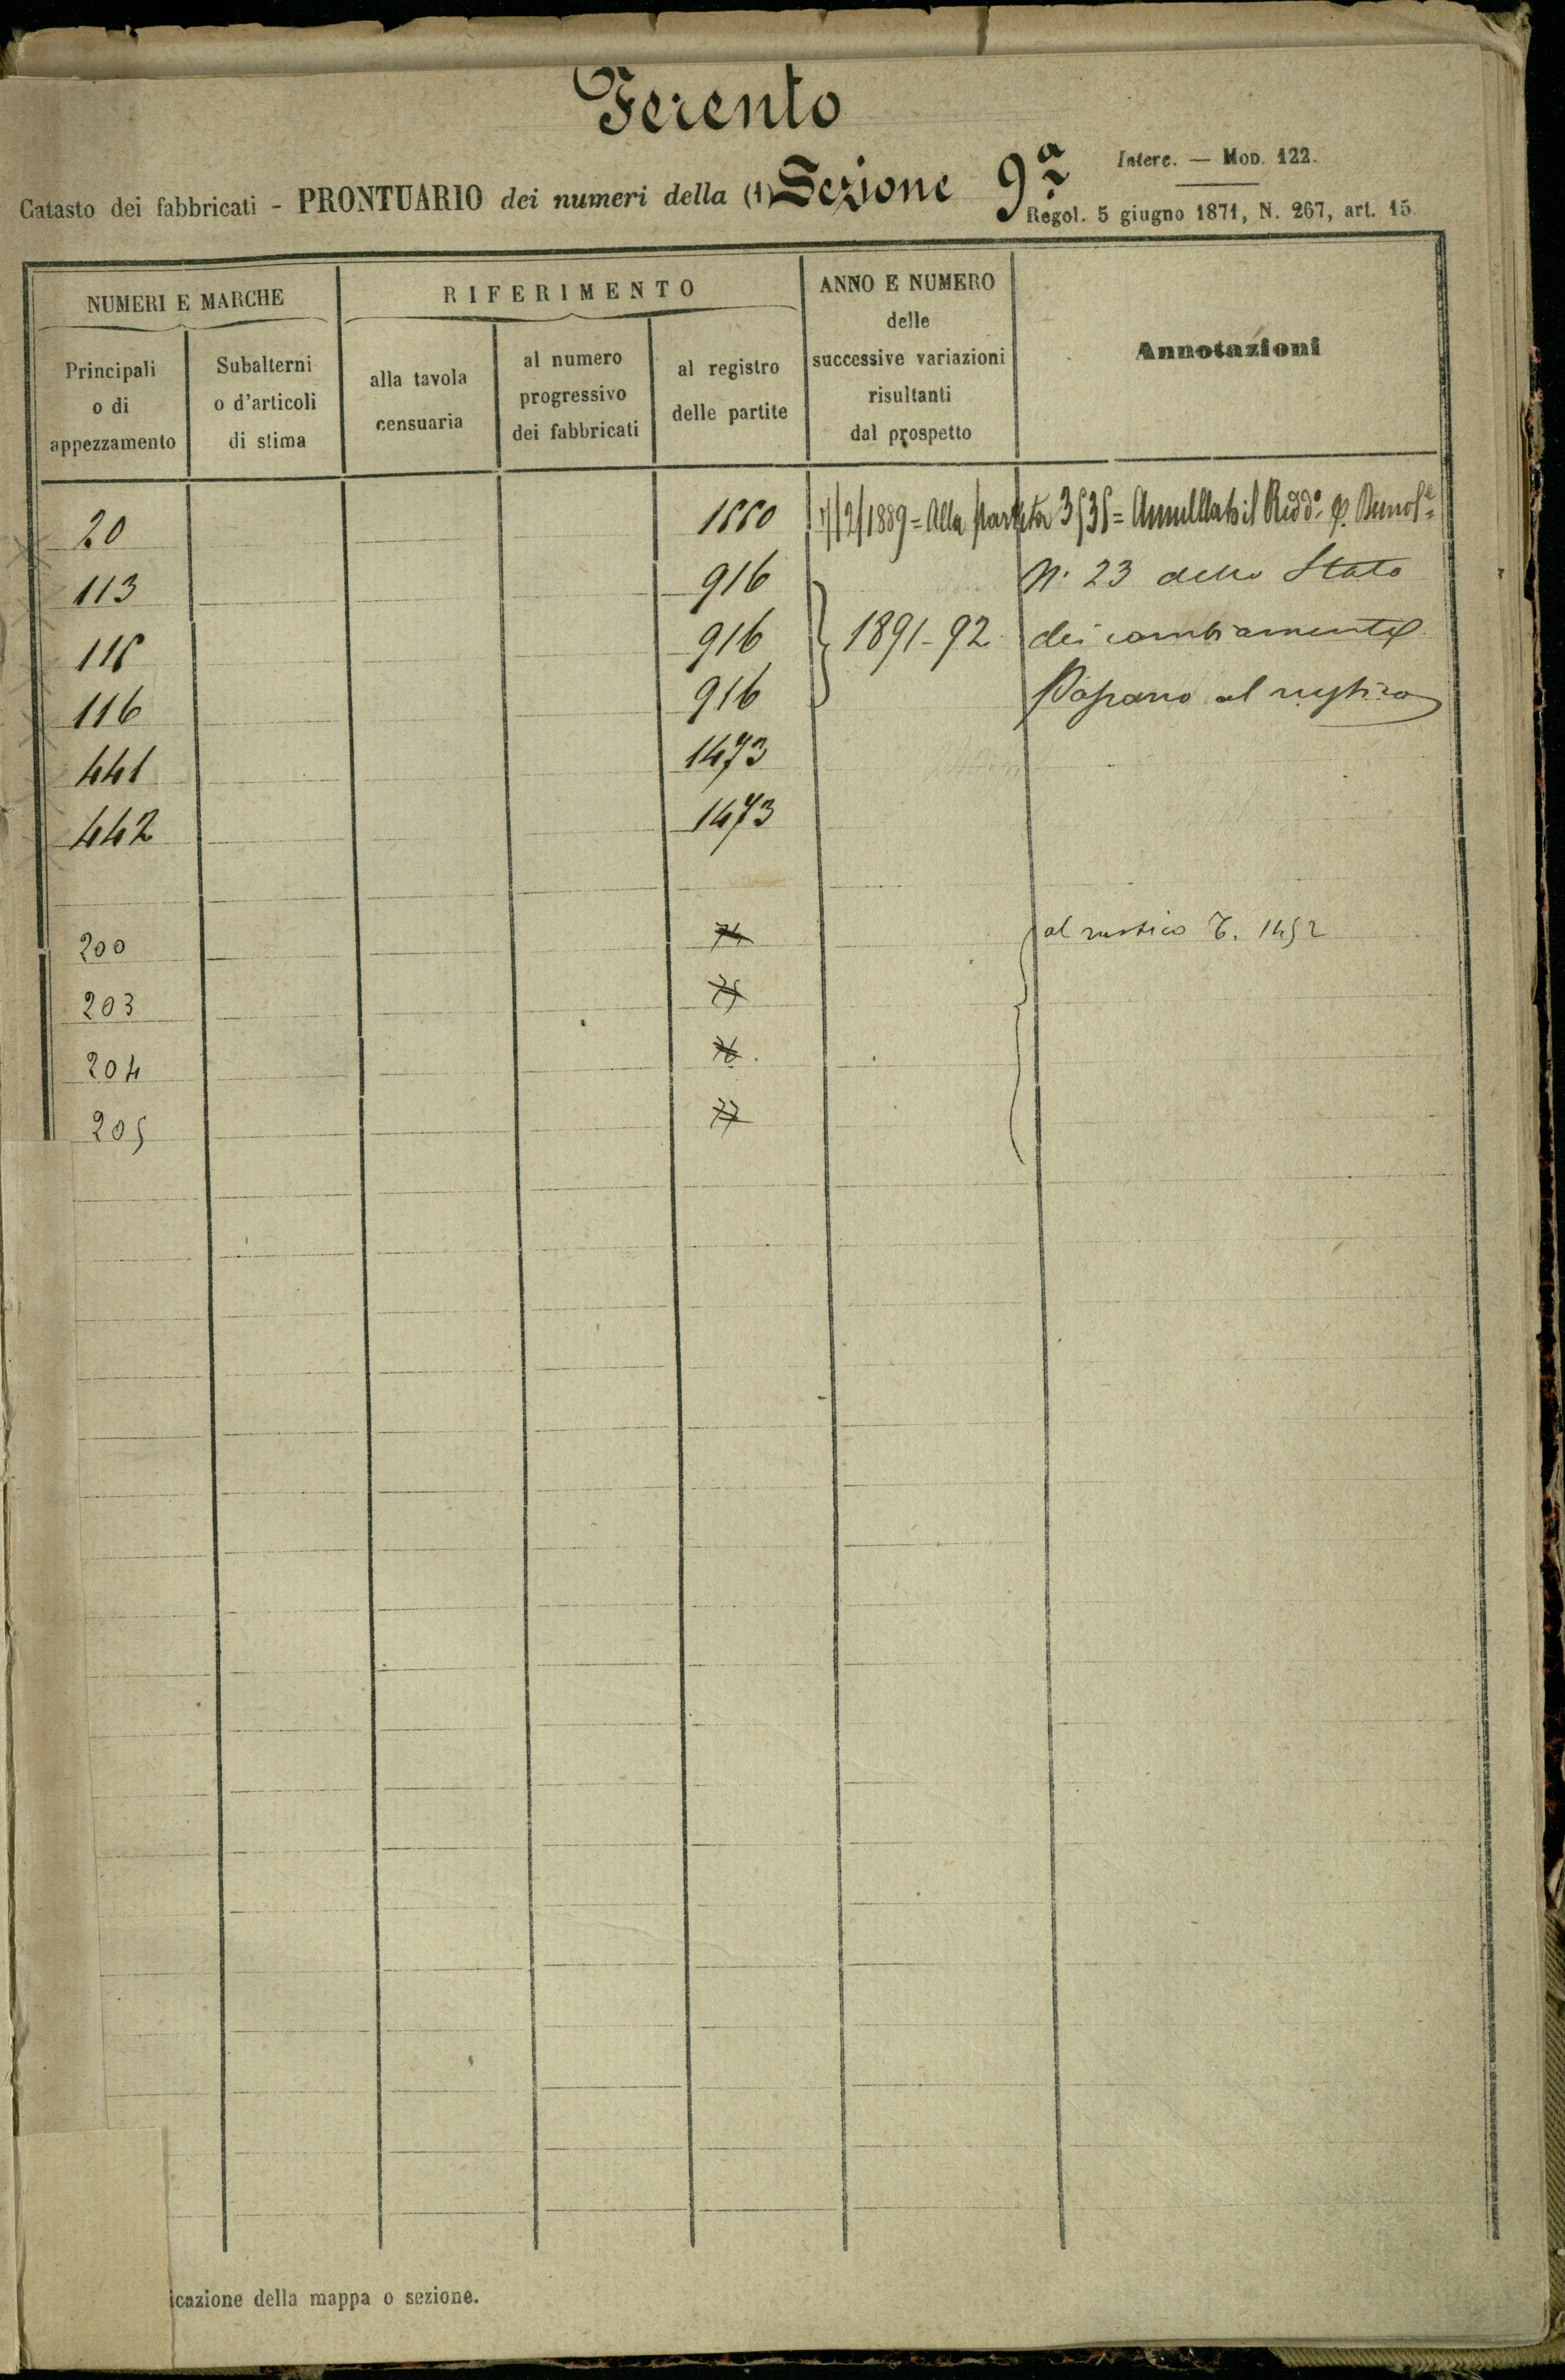 Ferento
Interc. — Mod. 122.
Catasto dei fabbricati - PRONTUARIO dei numeri della (1) Sezione 9ª
Regol. 5 giugno 1871, N. 267, art. 15.
NUMERI E MARCHE
RIFERIMENTO
ANNO E NUMERO
delle
successive variazioni
risultanti
dal prospetto
Annotazioni
Principali
o di
appezzamento
Subalterni
o d'articoli
di stima
alla tavola
censuaria
al numero
progressivo
dei fabbricati
al registro
delle partite
20 1550 /2/1889 = Alla partita 3535 = Annullato il Redd.º
113 916 N. 23 dello Stato
115 916 1891-92 dei cambiamenti
116 916 Passano al rustico
441 1473
442 1473
200 74 al rustico T. 1452
203 75
204 76
205 77
icazione della mappa o sezione.